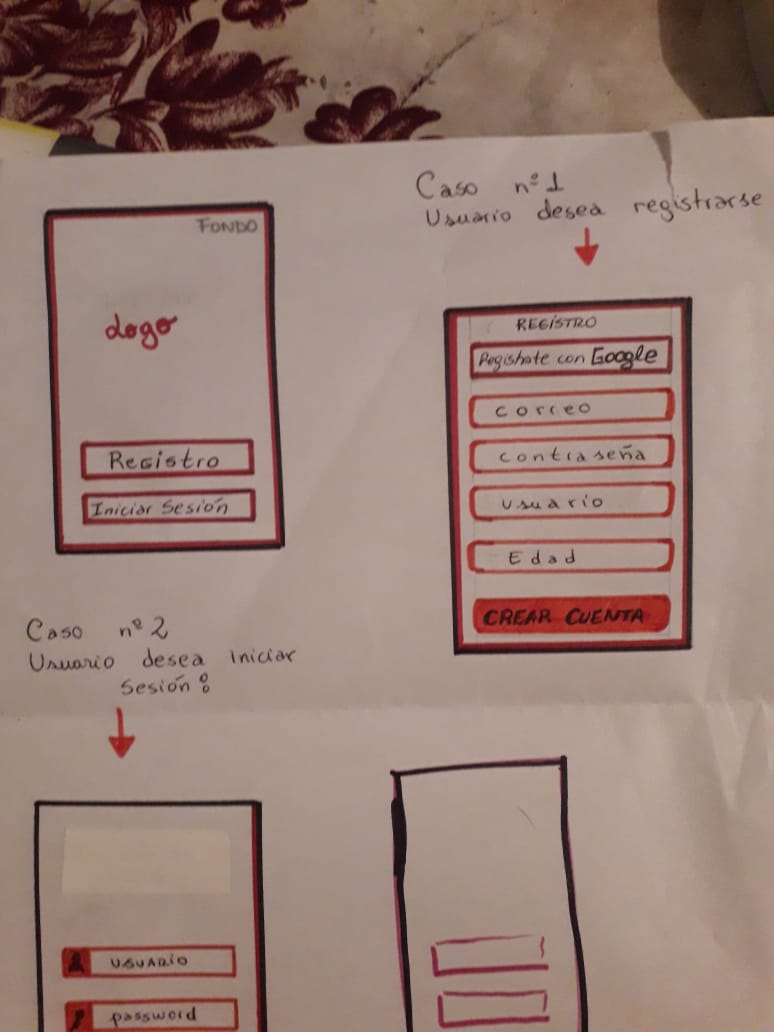 FONDO
Logo
Registro
Iniciar Sesión
Caso nº1
Usuario desea registrarse
REGISTRO
Registrate con Google
correo
contraseña
usuario
Edad
CREAR CUENTA
Caso nº2
Usuario desea iniciar
Sesión:
USUARIO
password